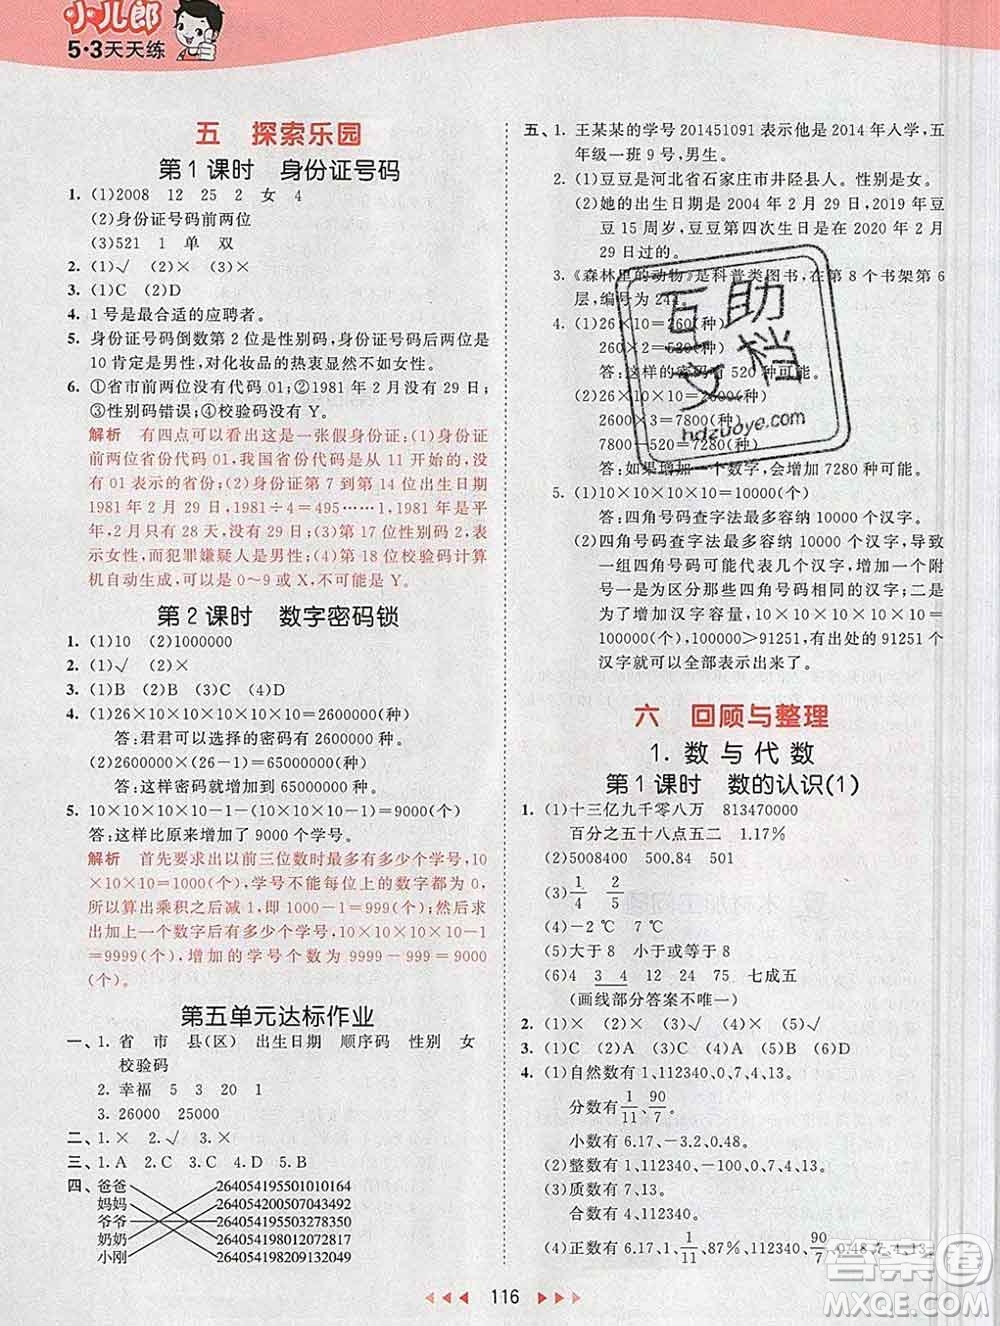 小儿郎
5·3天天练
五 探索乐园
第1课时 身份证号码
1. (1)2008 12 25 2 女 4
(2)身份证号码前两位
(3)521 1 单 双
2. (1)√ (2)× (3)×
3. (1)C (2)D
4. 1号是最合适的应聘者。
5. 身份证号码倒数第2位是性别码,身份证号码后两位是
10肯定是男性,对化妆品的热衷显然不如女性。
6. ①省市前两位没有代码01;②1981年2月没有29日;
③性别码错误;④校验码没有Y。
解析 有四点可以看出这是一张假身份证:(1)身份证
前两位省份代码01,我国省份代码是从11开始的,没
有01表示的省份;(2)身份证第7到第14位出生日期
1981年2月29日,1981÷4=495……1,1981年是平
年,2月只有28天,没有29日;(3)第17位性别码2,表
示女性,而犯罪嫌疑人是男性;(4)第18位校验码计算
机自动生成,可以是0~9或X,不可能是Y。
第2课时 数字密码锁
1. (1)10 (2)1000000
2. (1)√ (2)×
3. (1)B (2)B (3)C (4)D
4. (1)26×10×10×10×10×10=2600000(种)
答:君君可以选择的密码有2600000种。
(2)2600000×(26-1)=65000000(种)
答:这样做,密码的可能性增加到65000000种。
5. 10×10×10×10-1-(10×10×10-1)=9000(个)
答:这样比原来增加了9000个学号。
解析 首先要求出以前三位数时最多有多少个学号,10
×10×10=1000(个),学号不能每位上的数字都为0,
所以算出乘积之后减1,即1000-1=999(个);再求出
加上一个数字后有多少个学号,10×10×10×10-1=
9999(个),增加的学号个数为9999-999=9000
(个)。
第五单元达标作业
一、1. 省 市 县(区) 出生日期 顺序码 性别 女
校验码
2. 幸福 5 3 20 1
3. 26000 25000
二、1. × 2. √ 3. ×
三、1. A 2. C 3. C 4. D 5. B
四、爸爸 264054195501010164
妈妈 264054200507043492
爷爷 264054195503278350
奶奶 264054198207120031
小刚 264054198209132049
五、1. 王某某的学号201451091表示他是2014年入学,五
年级一班9号,男生。
2. (1)豆豆是河北省石家庄市井陉县人。性别是女。
(2)她的出生日期是2004年2月29日,2019年豆
豆15周岁,豆豆第四次生日是在2020年2月
29日过的。
3. 《森林里的动物》是科普类图书,在第8个书架第6
层,编号为24。
4. (1)26×10=260(种)
260×2=520(种)
答:这样的密码有520种可能。
(2)26×10×10=2600(种)
2600×3=7800(种)
7800-520=7280(种)
答:如果增加一个数字,可能增加7280种可能。
5. (1)10×10×10×10=10000(个)
答:四角号码查字法最多容纳10000个汉字。
(2)四角号码查字法最多容纳10000个汉字,导致
一组四角号码可能代表几个汉字,所以附号一
是为区分那些四角号码相同的汉字;二是
为了增加汉字容量,10×10×10×10×10=
100000(个),100000>91251,有出处的91251个
汉字就可以全部表示出来了。
六 回顾与整理
1. 数与代数
第1课时 数的认识(1)
1. (1)十三亿九千零八万 813470000
百分之五十八点五二 1.17%
(2)5008400 500.84 501
(3)1/4 5/5
(4)-2℃ 7℃
(5)大于8 小于或等于8
(6)4 3 4 12 24 75 七成五
(画线部分答案不唯一)
2. (1)× (2)× (3)√ (4)× (5)√
3. (1)C (2)A (3)C (4)A (5)D
4. (1)自然数有1、112340、0、7、4、13。
分数有1/11、90/7。
小数有6.17、-3.2、0.48。
(2)整数有1、112340、-100、0、7、4、13。
(3)质数有7、13。
合数有4、112340。
(4)正数有6.17、1、1/11、87%、112340、90/7、0.48、7、4、13。
116
互助文档
hdzuoye.com
答案圈
MXQE.COM